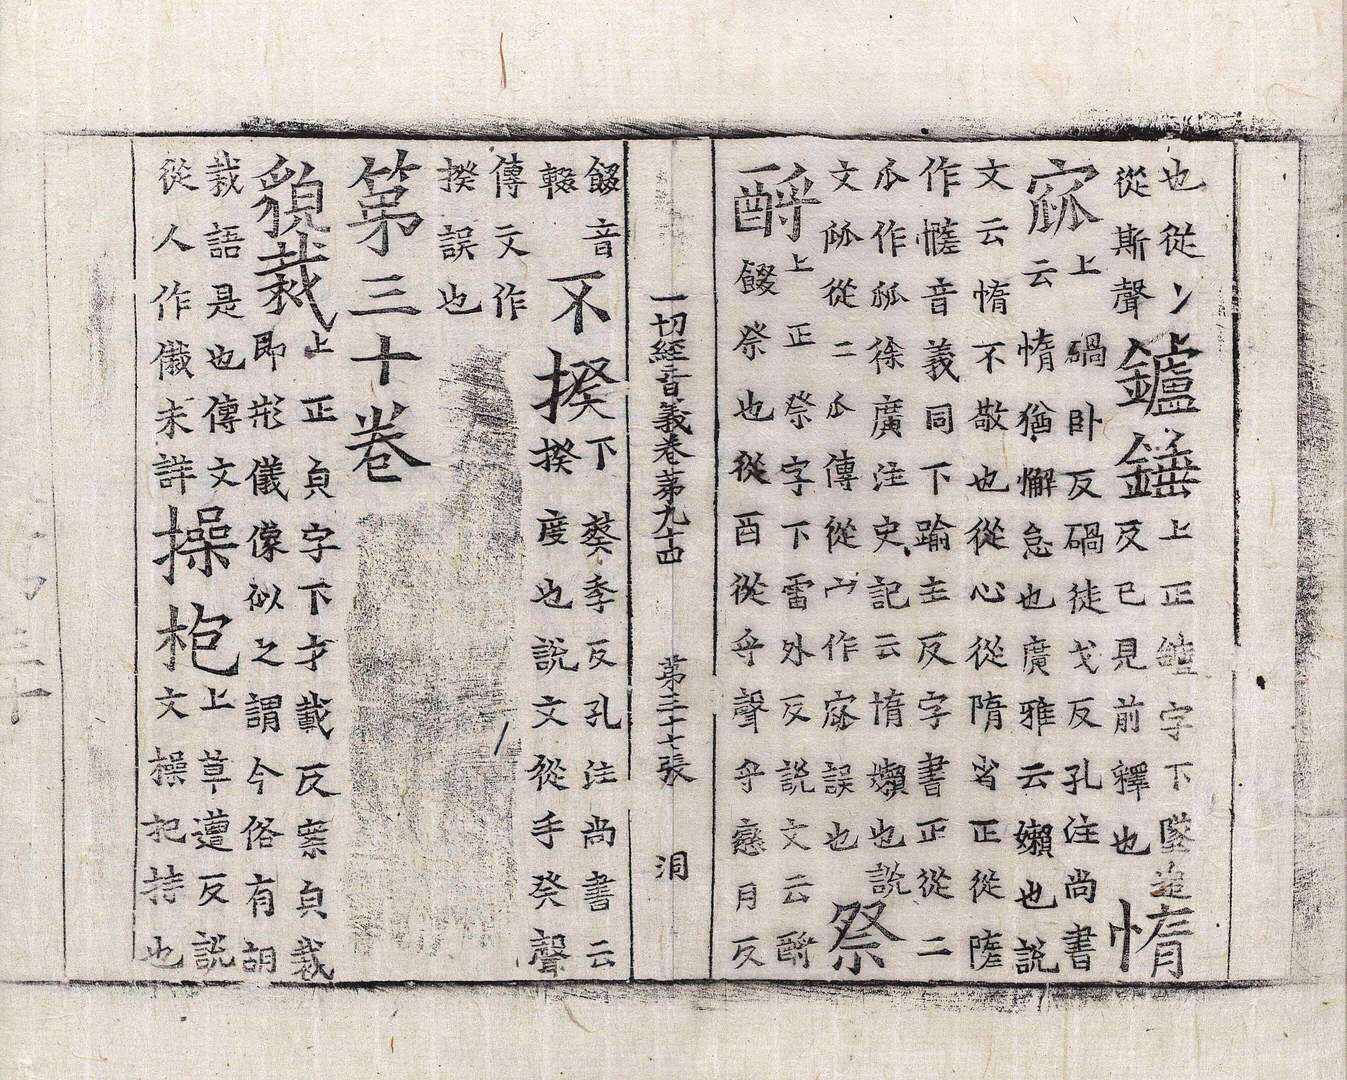 也從冫
從斯聲
鑪錘
上正字下墜追
反已見前釋也
惰
窳
上碢卧反碢徒戈反孔注尚書
云惰猶懈怠也廣雅云嬾也説
文云惰不敬也從心從隋省正從隓
作憜音義同下踰主反字書正從二
瓜作㼌徐廣注史記云惰嬾也説
文㼌從二瓜傳從宀作窳誤也
祭
酹
上正祭字下雷外反説文云酹
餟祭也從酉從寽聲寽戀月反
一切經音義卷第九十四 第三十七張 洞
餟音
輟
不揆
下葵季反孔注尚書云
揆度也説文從手癸聲
傳文作
揆誤也
第三十卷
貌裁
上正皃字下才載反案皃裁
即形儀像似之謂今俗有胡
裁語是也傳文
從人作儎未詳
操枹
上草遭反説
文操把持也